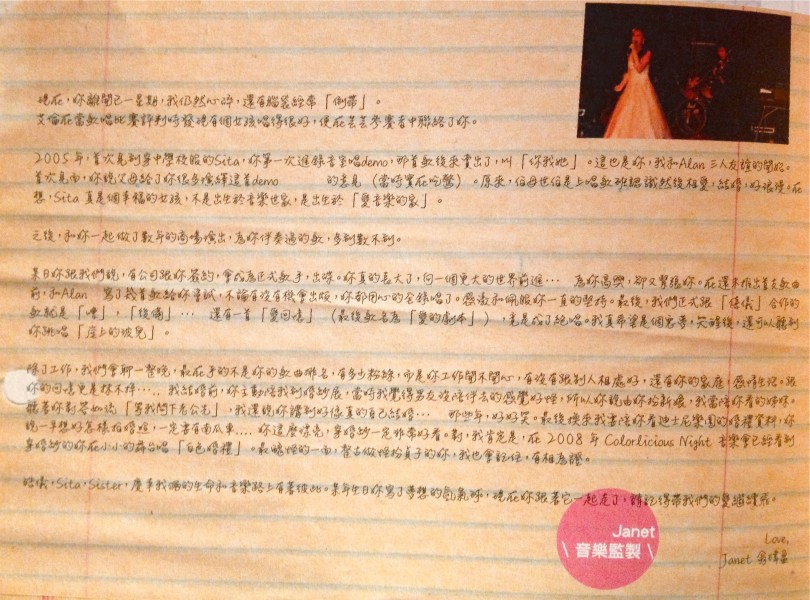 現在，妳離開已一星期，我仍然心碎，還有腦袋經常「倒帶」。
艾倫在當歌唱比賽評判時發現有個女孩唱得很好，便在芸芸參賽者中聯絡了妳。
2005年，首次見到穿中學校服的Sita，妳第一次進錄音室唱demo，那首歌後來賣出了，叫「你我她」。這也是妳，我和Alan三人友誼的開始。
首次見面，妳說父母給了妳很多演繹這首demo 的意見（當時實在吃驚）。原來，伯母世伯是上唱歌班認識然後相愛，結婚，好浪漫。在
想，Sita真是個幸福的女孩，不是出生於音樂世家，是出生於「愛音樂的家」。
之後，和妳一起做了數年的商場演出，為妳伴奏過的歌，多到數不到。
某日妳跟我們說，有公司跟妳簽約，會成為正式歌手，出碟。妳真的長大了，向一個更大的世界前進… 為妳高興，卻又緊張妳。在還未推出首支歌曲
前，和Alan 寫了幾首歌給妳嘗試，不論有沒有機會出版，妳都用心的全錄唱了。感激和佩服妳一直的堅持。最後，我們正式跟「鍇儀」合作的
歌就是「嘥」，「後備」… 還有一首「愛回嘥」（最後歌名為「愛的劇本」），竟是成了絕唱。我真希望是個惡夢，笑醒後，還可以聽到
妳挑唱「崖上的波兒」。
除了工作，我們會聊一整晚，最在乎的不是妳的歌曲排名，有多少粉絲，而是妳工作開不開心，有沒有跟別人相處好，還有妳的家庭，感情生活。跟
妳的回憶更是抹不掉…. 我結婚前，妳主動陪我到婚紗展，當時我覺得男友沒陪伴去的感覺好怪，所以妳說由妳扮新娘，我當陪妳看的姊妹。
聽著妳對答如流「等我問下老公先」，我還說妳講到好似真的自己結婚… 那些年，好好笑。最後換來我書陪妳看迪士尼樂園的婚禮資料，妳
說一早想好怎樣拍婚照，一定要有南瓜車…. 妳這麼漂亮，穿婚紗一定非常好看。對，我肯定是，在2008年Colorlicious Night音樂會已經看到
穿婚紗的妳在小小的舞台唱「白色婚禮」。最瞻怪的一面，聲古做怪扮貞子的妳，我也會記住，有相為證。
鍇儀，Sita，Sister，慶幸我倆的生命和音樂路上有著彼此。某年生日妳寫了夢想的氫氣球，現在妳跟著它一起走了，請記得帶我們的愛繼續飛。
Love,
Janet
Janet
\ 音樂監製 \